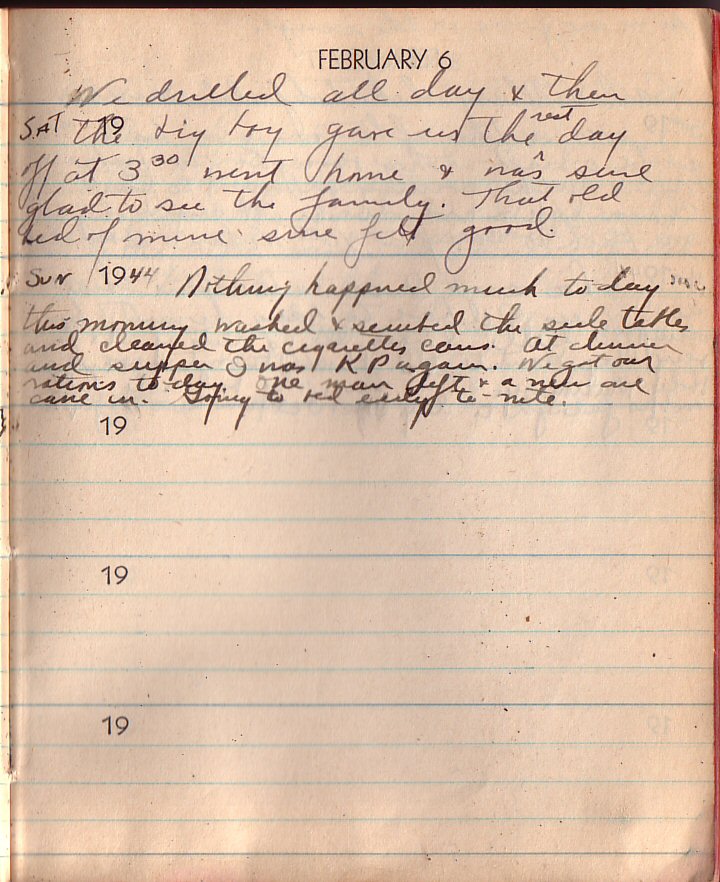 FEBRUARY 6
We drilled all day & then
SAT 19 the big boy gave us the rest day
off at 3 30 went home & was sure
glad to see the family. That old
bed of mine sure felt good.
SUN 1944 Nothing happned much to day
this morning washed & scrubed the side tables
and cleaned the cigarettes cans. At dinner
and supper I was K P again. We got our
rations to-day. One man left & a new one
came in. Going to bed early to-nite.
19
19
19